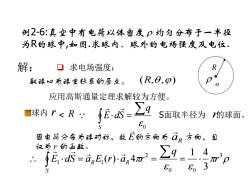 例2-6:真空中有电荷以体密度ρ均匀分布于一半径
为R的球中,如图.求球内、球外的电场强度及电位.
解:
求电场强度:
取球心为球坐标系的原点。
(R,θ,φ)
R
ρ
o
应用高斯通量定理求解较为方便。
球内 r < R ∵ ∮_S E·dS = ∑q/ε₀ S面取半径为 r的球面。
因电荷分布为球对称,故E的方向为 a_R 方向,且
∴ ∮_S E₁·dS = a_R E₁(r)·a_R 4πr² = ∑q/ε₀ = 1/ε₀ 4/3 πr³ρ